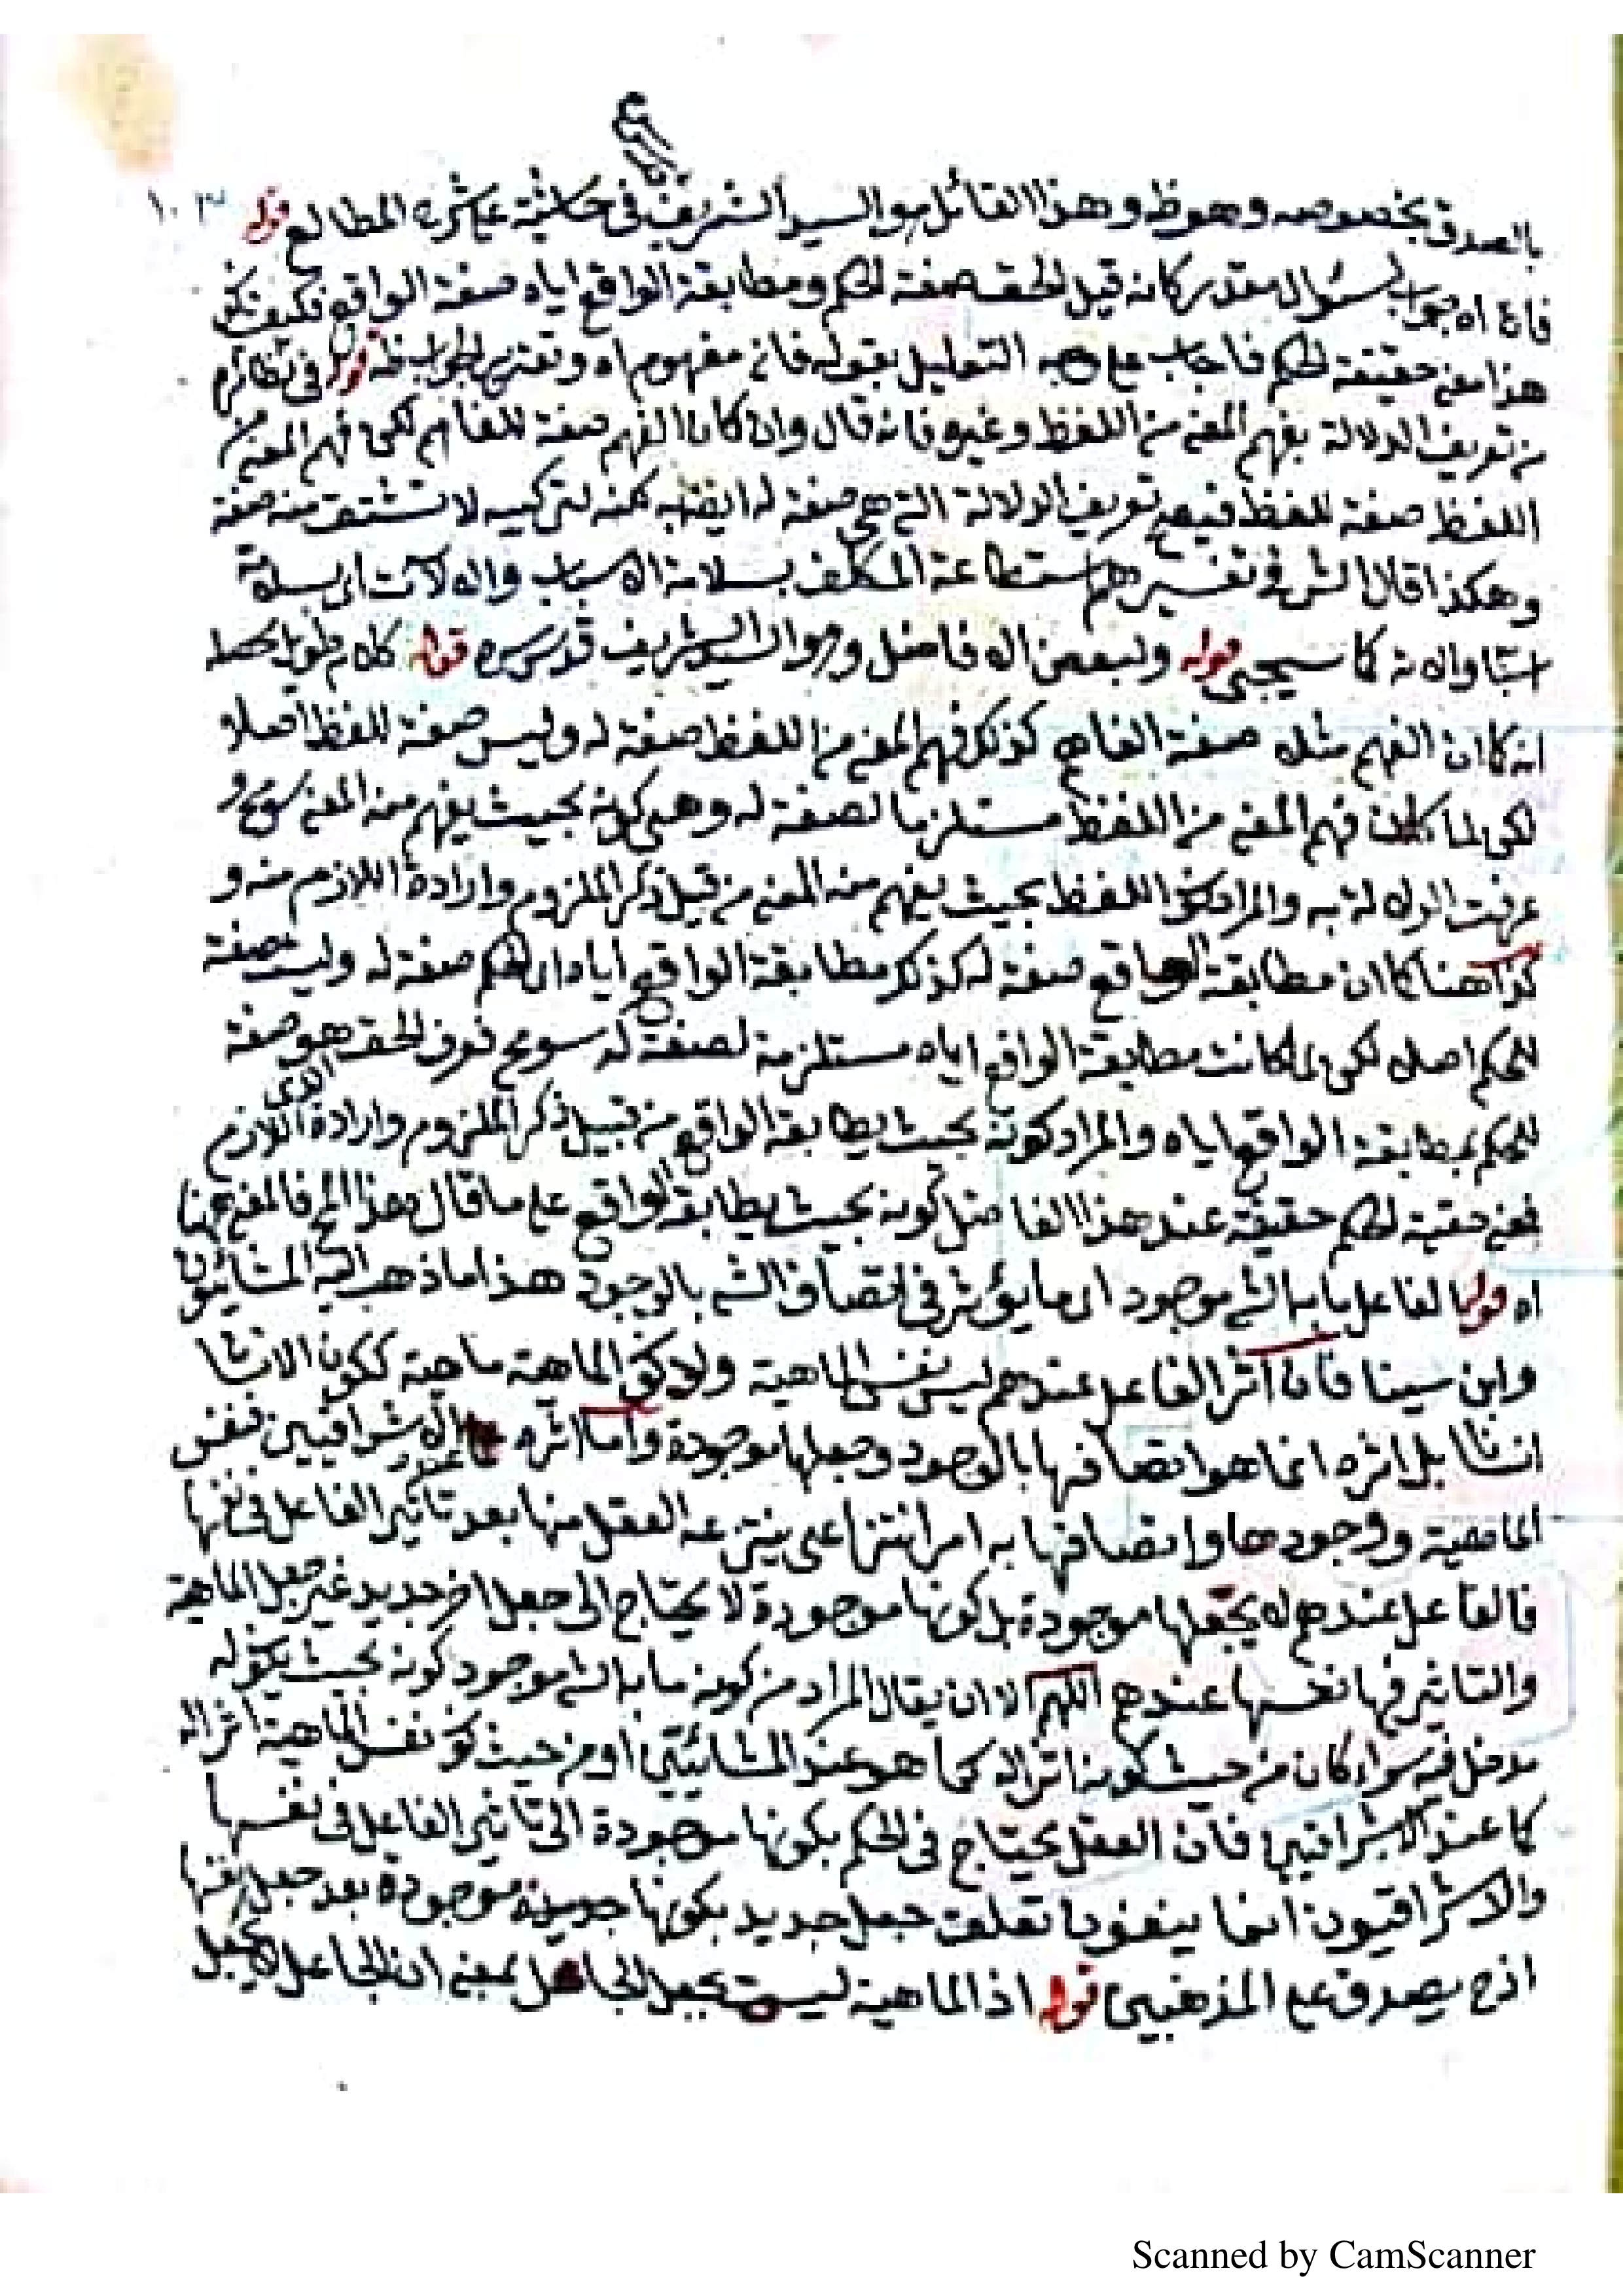 بالصدق بخصوصه وهو ظ وهذا القائل هو السيد الشريف في حاشية على شرح المطالع قوله
١٠٣
فانه اه جواب لسؤال مقدر كانه قيل الحقية صفة الحكم ومطابقة الواقع اياه صفة الواقع فكيف يكون
هذا معنى حقيقة الحكم فاجاب على وجه التعليل بقوله فان مفهوم اه وتقرير الجواب ظ قوله في نظائرهم
من تعريف الدلالة بفهم المعنى من اللفظ وغيره فانه قال وان كان الفهم صفة للفاهم لكن فهم المعنى من
اللفظ صفة للفظ فيصح تعريف الدلالة التي هي صفة له ايضا به لكنه لتركيبه لا تشتق منه صفة
وهكذا قال الش في تفسيرهم استطاعة المكلف بسلامة الاسباب والالات اى بسلامة
اسبابه والاته كما سيجئ قوله ولبعض الافاضل وهو السيد الشريف قدس سره قوله كلام طويل حاصله
انه كما ان الفهم مثلا صفة الفاهم كذلك فهم المعنى من اللفظ صفة له وليس صفة للفظ اصلا
لكن لما كان فهم المعنى من اللفظ مستلزما لصفة له وهى كونه بحيث يفهم منه المعنى سومح و
عرفت الدلالة به والمراد كون اللفظ بحيث يفهم منه المعنى من قبيل ذكر الملزوم وارادة اللازم منه و
كذا ههنا كما ان مطابقة الواقع صفة له كذلك مطابقة الواقع اياه اى الحكم صفة له وليست صفة
للحكم اصلا لكن لما كانت مطابقة الواقع اياه مستلزمة لصفة له سومح فعرف الحق الذى هو صفة
للحكم بمطابقة الواقع اياه والمراد كونه بحيث يطابقه الواقع من قبيل ذكر الملزوم وارادة اللازم
فمعنى حقية الحكم حقيقة عند هذا الفاضل كونه بحيث يطابقه الواقع على ما قال هذا المح فالمعنى ههنا
اه قوله الفاعل ما به الشئ موجود اى ما يؤثر في اتصاف الشئ بالوجود هذا ما ذهب اليه المشائيون
وابن سينا فان اثر الفاعل عندهم ليس نفس الماهية ولا كون الماهية ماهية ككون الانسان
انسانا بل اثره انما هو اتصافها بالوجود وجعلها موجودة واما اثره عند الاشراقيين نفس
الماهية ووجودها واتصافها به امر انتزاعى ينتزعه العقل منها بعد تأثير الفاعل في نفسها
فالفاعل عندهم لا يجعلها موجودة بل كونها موجودة لا يحتاج الى جعل اخر جديد غير جعل الماهية
والتاثير فيها نفسها عندهم اللهم الا ان يقال المراد من كونه ما به الشئ موجود كونه بحيث يكون له
مدخل فيه سواء كان من حيث كونه اثرا له كما هو عند المشائيين او من حيث كون نفس الماهية اثرا له
كما عند الاشراقيين فان العقل يحتاج في الحكم بكونها موجودة الى تاثير الفاعل في نفسها
والاشراقيون انما ينفون تعلق جعل جديد بكونها موجودة بعد جعل نفسها
اذح يصدق على المذهبين قوله اذ الماهية ليست بجعل الجاعل بمعنى ان الجاعل لم يجعل
Scanned by CamScanner